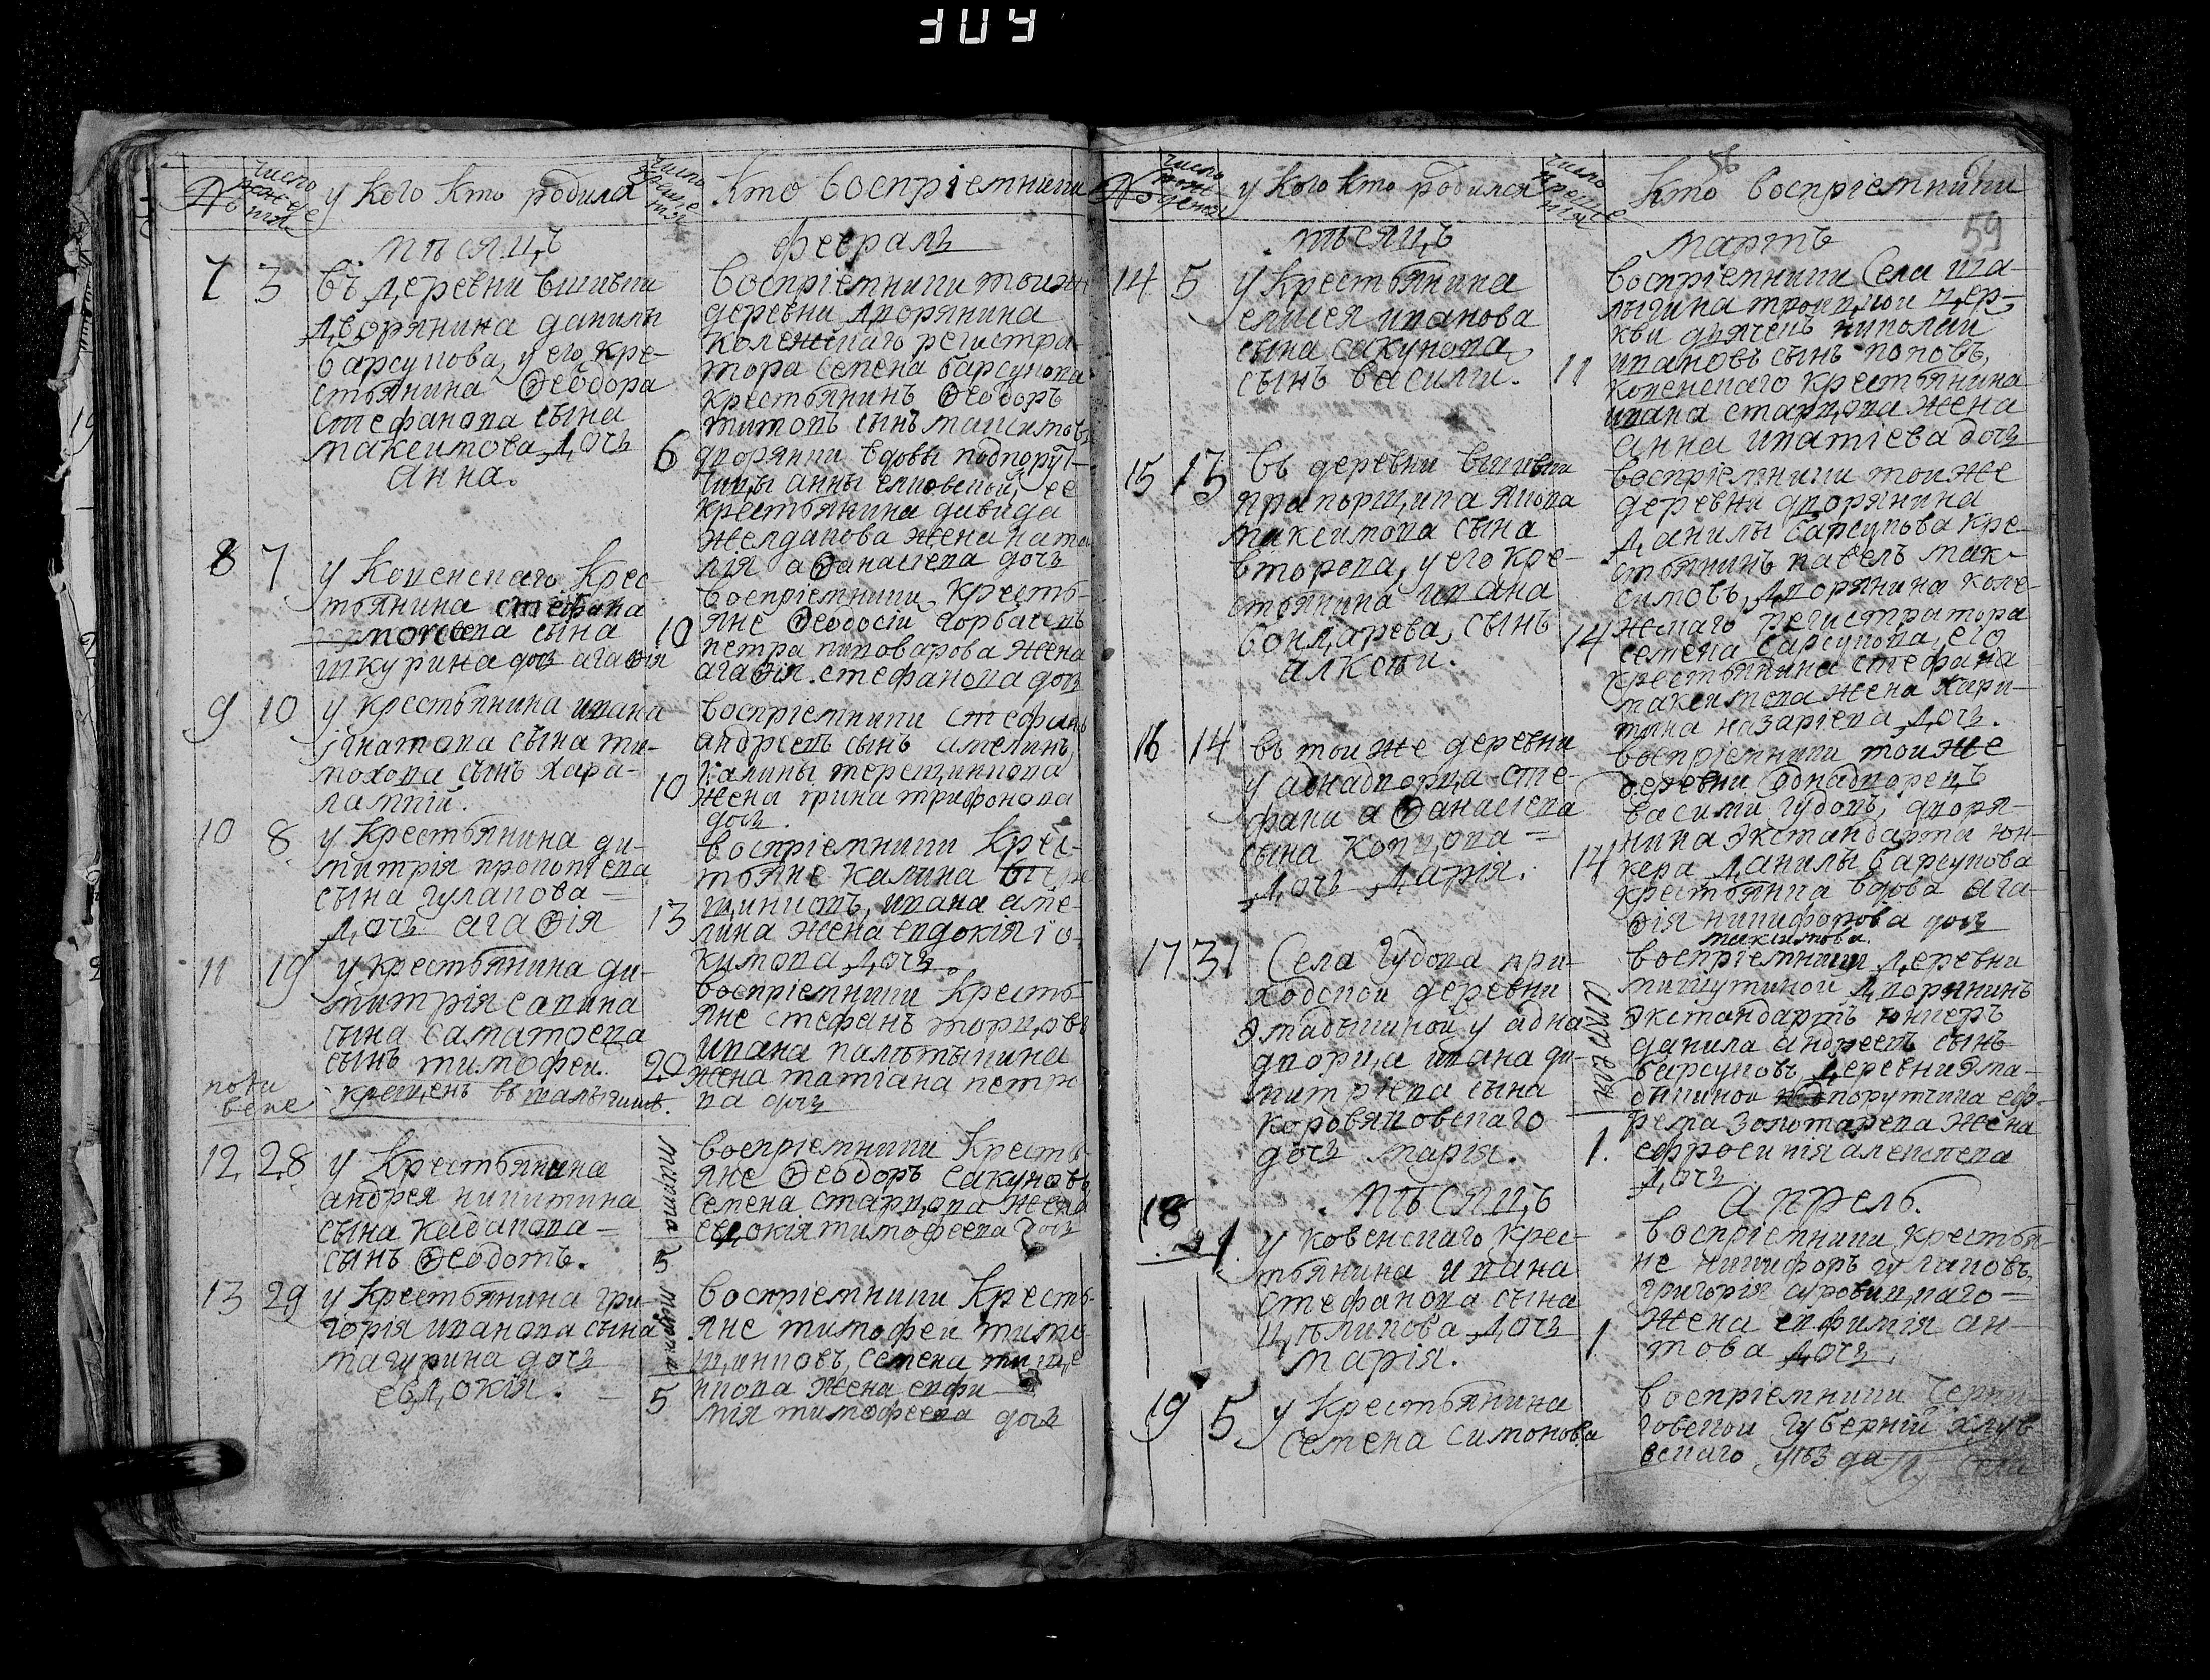 309
№
число рожде нія
у кого кто родился
число креще нія
кто воспріемники
мѣсяцъ
февралъ
7 3
въ деревни вшивки
дворянина данилы
барсукова, у его кре-
стьянина Ѳеодора
стефанова сына
максимова дочь
анна.
6
воспріемники тоиже
деревни дворянина
колежскаго регистра-
тора семена барсукова
крестьянинъ Ѳеодоръ
титовъ сынъ максимовъ
дворянки вдовы подпорут-
чицы анны
крестьянина давида
желданова жена ната
лія аѲанасіева дочь
8 7
у Ковенскаго Крес-
тьянина стефана
сына
шкурина дочь агаѲія
10
воспріемники кресть-
яне Ѳеодосіи горбачевъ
петра пивоварова жена
агаѲія стефанова дочь
9 10
у крестьянина ивана
игнатова сына ти-
мохова сынъ хара-
лампій.
10
воспріемники стефанъ
андреевъ сынъ амелинъ
Калины терещинкова
жена ірина трифонова
дочь
10 8
у Крестьянина ди-
митрія прокопіева
сына гулакова =
дочь агаѲія
13
воспріемники Крес-
тьяне Калина
ивана аме-
лина жена евдокія іо-
кимова дочь.
11 19
у крестьянина ди-
митрія савина
сына саматоева
сынъ тимофеи.
крещенъ въ шалыгинѣ.
20
воспріемники Кресть-
яне стефанъ
ивана
жена татіана петро
ва дочь
12 28
у Крестьянина
андрея никитина
сына кадакова =
сынъ Ѳеодотъ.
марта 3
воспріемники Кресть-
яне Ѳеодоръ сакуновъ
семена старцова жена
евдокія тимофеева дочь
13 29
у Крестьянина гри
горія иванова сына
магурина дочь
евдокія. =
марта 5
воспріемники Кресть-
яне тимофеи
семена
жена евфи-
мія тимофеева дочь
№
число рож денія
у кого кто родился
число креще нія
кто воспріемники
59
мѣсяцъ
мартъ
14 5
у крестьянина
елисея иванова
сына сакунова
сынъ василіи.
11
воспріемники села ша-
лыгина троицкои цер-
кви дьячекъ николаи
ивановъ сынъ поповъ,
ковенскаго крестьянина
ивана старцова жена
анна игнатіева дочь
15 13
въ деревни вшивки
прапорщика якова
максимова сына
второва, у его кре-
стьянина ивана
бондарева, сынъ
алксѣи.
14
воспріемники тоиже
деревни дворянина
данилы барсукова кре-
стьянинъ павелъ мак-
симовъ, дворянина коле-
жскаго регистратора
семена барсукова, его
крестьянина стефана
максимова жена хари-
тина назаріева дочь.
16 14
въ тоиже деревни
у аднадворца сте-
фана аѲанасіева
сына копцова =
дочь дарія.
14
воспріемники тоиже
деревни однадворецъ
василіи гудовъ, дворя-
нина экстандарта юн-
кера данилы барсукова
крестьянка вдова ага-
Ѳія никифорова дочь
максимова.
17 31
Села гудова при-
ходскои деревни
у адна
дворца ивана ди-
митріева сына
коровяковскаго
дочь марія.
апреля 1.
воспріемники деревни
дворянинъ
экстандартъ юнкеръ
данила андреевъ сынъ
барсуковъ деревни
порутчика еф-
рема золотарева жена
ефросинія алексѣева
дочь
мѣсяцъ
апрель.
18 1
у ковенскаго крес-
тьянина ивана
стефанова сына
цѣликова дочь
марія.
1
воспріемники крестья-
не никифоръ гулаковъ,
григорія суровицкаго =
жена евфимія ан-
това дочь.
19 5
у крестьянина
семена симонова
воспріемники черни
говскои губерніи глухо
вскаго уѣзда села